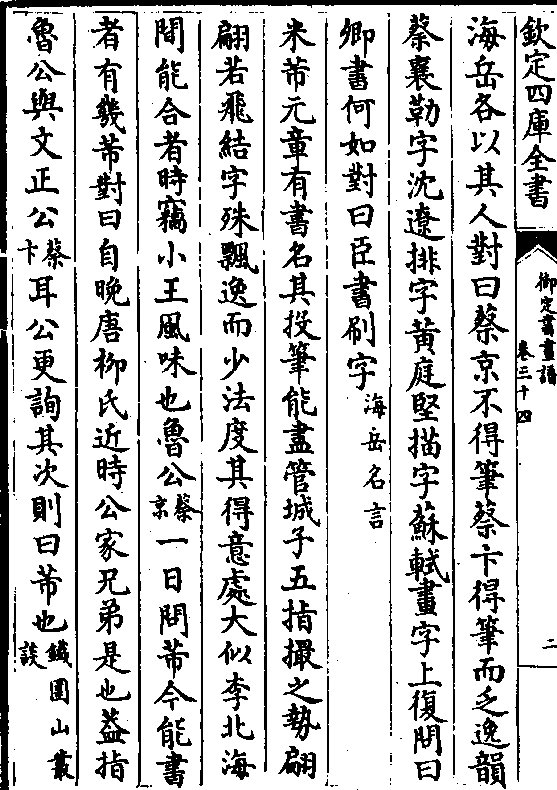 欽定四庫全書
御定書畫譜
卷三十四
二
海岳各以其人對曰蔡京不得筆蔡卞得筆而乏逸韻
蔡襄勒字沈遼排字黃庭堅描字蘇軾畫字上復問曰
卿書何如對曰臣書刷字海岳名言
米芾元章有書名其投筆能盡管城子五指撮之勢翩
翩若飛結字殊飄逸而少法度其得意處大似李北海
間能合者時竊小王風味也魯公蔡京一日問芾今能書
者有幾芾對曰自晚唐柳氏近時公家兄弟是也葢指
魯公與文正公蔡卞耳公更詢其次則曰芾也鐵圍山叢談